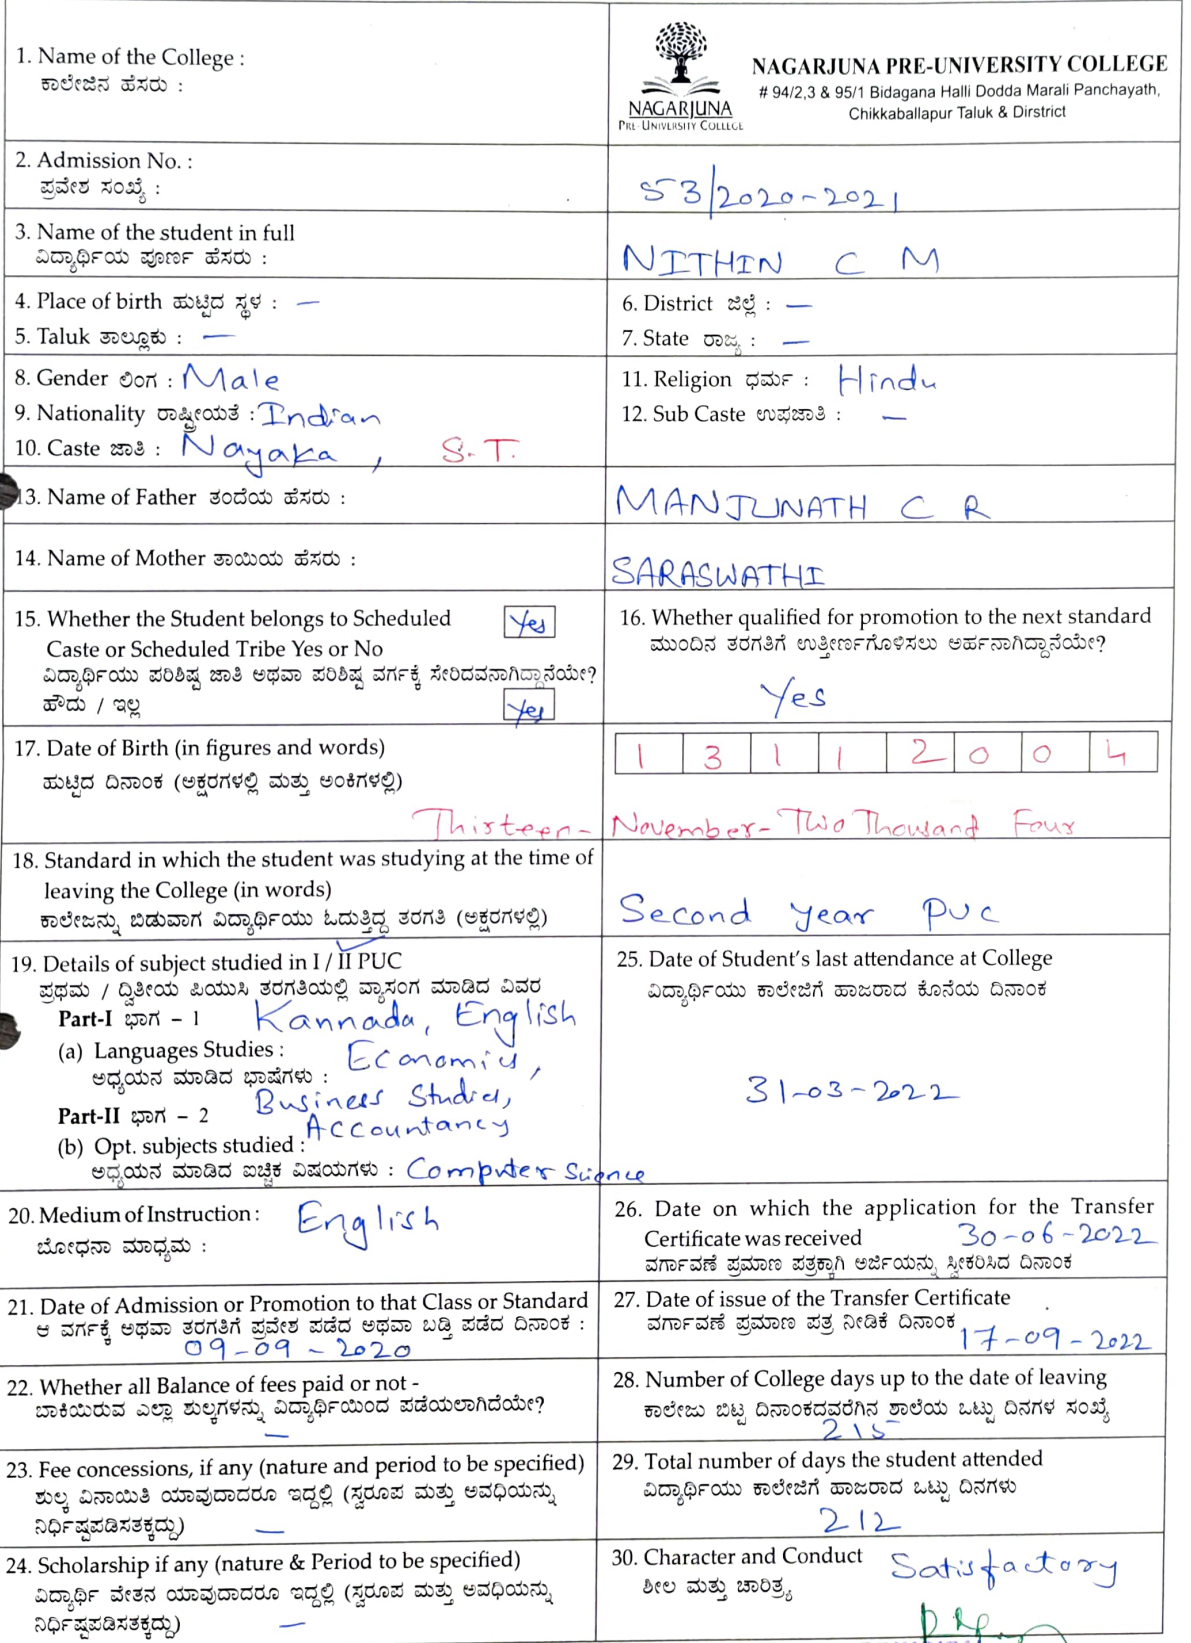 1. Name of the College :
ಕಾಲೇಜಿನ ಹೆಸರು :
NAGARJUNA
PRE-UNIVERSITY COLLEGE
NAGARJUNA PRE-UNIVERSITY COLLEGE
# 94/2,3 & 95/1 Bidagana Halli Dodda Marali Panchayath,
Chikkaballapur Taluk & Dirstrict
2. Admission No. :
ಪ್ರವೇಶ ಸಂಖ್ಯೆ :
53/2020-2021
3. Name of the student in full
ವಿದ್ಯಾರ್ಥಿಯ ಪೂರ್ಣ ಹೆಸರು :
NITHIN C M
4. Place of birth ಹುಟ್ಟಿದ ಸ್ಥಳ : —
5. Taluk ತಾಲ್ಲೂಕು : —
6. District ಜಿಲ್ಲೆ : —
7. State ರಾಜ್ಯ : —
8. Gender ಲಿಂಗ : Male
9. Nationality ರಾಷ್ಟ್ರೀಯತೆ : Indian
10. Caste ಜಾತಿ : Nayaka , S.T.
11. Religion ಧರ್ಮ : Hindu
12. Sub Caste ಉಪಜಾತಿ : —
13. Name of Father ತಂದೆಯ ಹೆಸರು :
MANJUNATH C R
14. Name of Mother ತಾಯಿಯ ಹೆಸರು :
SARASWATHI
15. Whether the Student belongs to Scheduled Yes
Caste or Scheduled Tribe Yes or No
ವಿದ್ಯಾರ್ಥಿಯು ಪರಿಶಿಷ್ಟ ಜಾತಿ ಅಥವಾ ಪರಿಶಿಷ್ಟ ವರ್ಗಕ್ಕೆ ಸೇರಿದವನಾಗಿದ್ದಾನೆಯೇ?
ಹೌದು / ಇಲ್ಲ Yes
16. Whether qualified for promotion to the next standard
ಮುಂದಿನ ತರಗತಿಗೆ ಉತ್ತೀರ್ಣಗೊಳಿಸಲು ಅರ್ಹನಾಗಿದ್ದಾನೆಯೇ?
Yes
17. Date of Birth (in figures and words)
ಹುಟ್ಟಿದ ದಿನಾಂಕ (ಅಕ್ಷರಗಳಲ್ಲಿ ಮತ್ತು ಅಂಕಿಗಳಲ್ಲಿ)
1 3 1 1 2 0 0 4
Thirteen- November- Two Thousand Four
18. Standard in which the student was studying at the time of
leaving the College (in words)
ಕಾಲೇಜನ್ನು ಬಿಡುವಾಗ ವಿದ್ಯಾರ್ಥಿಯು ಓದುತ್ತಿದ್ದ ತರಗತಿ (ಅಕ್ಷರಗಳಲ್ಲಿ)
Second year PUC
19. Details of subject studied in I / II PUC
ಪ್ರಥಮ / ದ್ವಿತೀಯ ಪಿಯುಸಿ ತರಗತಿಯಲ್ಲಿ ವ್ಯಾಸಂಗ ಮಾಡಿದ ವಿವರ
Part-I ಭಾಗ – 1 Kannada, English
(a) Languages Studies : Economics,
ಅಧ್ಯಯನ ಮಾಡಿದ ಭಾಷೆಗಳು :
Business Studies,
Part-II ಭಾಗ – 2
Accountancy
(b) Opt. subjects studied :
ಅಧ್ಯಯನ ಮಾಡಿದ ಐಚ್ಛಿಕ ವಿಷಯಗಳು : Computer Science
25. Date of Student's last attendance at College
ವಿದ್ಯಾರ್ಥಿಯು ಕಾಲೇಜಿಗೆ ಹಾಜರಾದ ಕೊನೆಯ ದಿನಾಂಕ
31-03-2022
20. Medium of Instruction : English
ಬೋಧನಾ ಮಾಧ್ಯಮ :
26. Date on which the application for the Transfer
Certificate was received 30-06-2022
ವರ್ಗಾವಣೆ ಪ್ರಮಾಣ ಪತ್ರಕ್ಕಾಗಿ ಅರ್ಜಿಯನ್ನು ಸ್ವೀಕರಿಸಿದ ದಿನಾಂಕ
21. Date of Admission or Promotion to that Class or Standard
ಆ ವರ್ಗಕ್ಕೆ ಅಥವಾ ತರಗತಿಗೆ ಪ್ರವೇಶ ಪಡೆದ ಅಥವಾ ಬಡ್ತಿ ಪಡೆದ ದಿನಾಂಕ :
09-09-2020
27. Date of issue of the Transfer Certificate
ವರ್ಗಾವಣೆ ಪ್ರಮಾಣ ಪತ್ರ ನೀಡಿಕೆ ದಿನಾಂಕ
17-09-2022
22. Whether all Balance of fees paid or not -
ಬಾಕಿಯಿರುವ ಎಲ್ಲಾ ಶುಲ್ಕಗಳನ್ನು ವಿದ್ಯಾರ್ಥಿಯಿಂದ ಪಡೆಯಲಾಗಿದೆಯೇ?
—
28. Number of College days up to the date of leaving
ಕಾಲೇಜು ಬಿಟ್ಟ ದಿನಾಂಕದವರೆಗಿನ ಶಾಲೆಯ ಒಟ್ಟು ದಿನಗಳ ಸಂಖ್ಯೆ
215
23. Fee concessions, if any (nature and period to be specified)
ಶುಲ್ಕ ವಿನಾಯಿತಿ ಯಾವುದಾದರೂ ಇದ್ದಲ್ಲಿ (ಸ್ವರೂಪ ಮತ್ತು ಅವಧಿಯನ್ನು
ನಿರ್ಧಿಷ್ಟಪಡಿಸತಕ್ಕದ್ದು) —
29. Total number of days the student attended
ವಿದ್ಯಾರ್ಥಿಯು ಕಾಲೇಜಿಗೆ ಹಾಜರಾದ ಒಟ್ಟು ದಿನಗಳು
212
24. Scholarship if any (nature & Period to be specified)
ವಿದ್ಯಾರ್ಥಿ ವೇತನ ಯಾವುದಾದರೂ ಇದ್ದಲ್ಲಿ (ಸ್ವರೂಪ ಮತ್ತು ಅವಧಿಯನ್ನು
ನಿರ್ಧಿಷ್ಟಪಡಿಸತಕ್ಕದ್ದು) —
30. Character and Conduct Satisfactory
ಶೀಲ ಮತ್ತು ಚಾರಿತ್ರ್ಯ